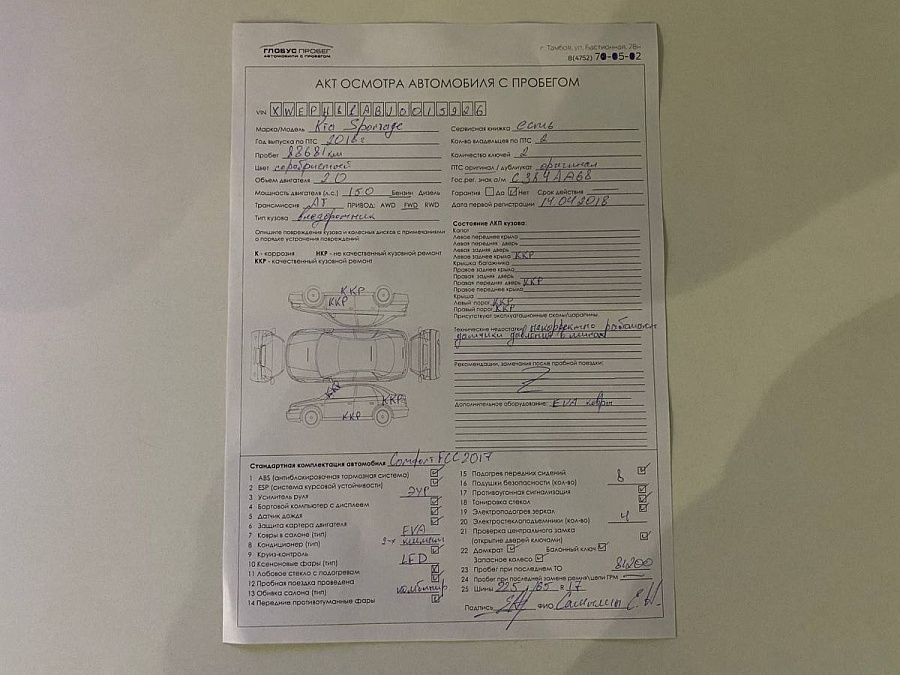 ГЛОБУС ПРОБЕГ
АВТОМОБИЛИ С ПРОБЕГОМ
г. Тамбов, ул. Бастионная, 28н
8(4752) 70-05-02
АКТ ОСМОТРА АВТОМОБИЛЯ С ПРОБЕГОМ
VIN
Марка/Модель Kia Sportage
Год выпуска по ПТС 2018 г
Пробег 88681 км
Цвет серебристый
Объем двигателя 2.0
Мощность двигателя (л.с.) 150 Бензин Дизель
Трансмиссия АТ ПРИВОД: AWD FWD RWD
Тип кузова внедорожник
Опишите повреждения кузова и колесных дисков с примечаниями
о порядке устранения повреждений
К - коррозия НКР - не качественный кузовной ремонт
ККР - качественный кузовной ремонт
ККР
ККР
ККР
ККР
ККР
Сервисная книжка есть
Кол-во владельцев по ПТС 2
Количество ключей 2
ПТС оригинал / дубликат оригинал
Гос. рег. знак а/м С384АА68
Гарантия Да Нет Срок действия
Дата первой регистрации 14.04.2018
Состояние ЛКП кузова:
Капот
Левое переднее крыло
Левая передняя дверь
Левая задняя дверь
Левое заднее крыло ККР
Крышка багажника
Правое заднее крыло
Правая задняя дверь
Правая передняя дверь ККР
Правое переднее крыло
Крыша
Левый порог ККР
Правый порог ККР
Присутствуют эксплуатационные сколы/царапины.
Технические недостатки некорректно работают
датчики давления в шинах
Рекомендации, замечания после пробной поездки:
Z
Дополнительное оборудование: EVA ковры
Стандартная комплектация автомобиля Comfort FCC 2017
1 ABS (антиблокировочная тормозная система)
2 ESP (система курсовой устойчивости)
3 Усилитель руля ЭУР
4 Бортовой компьютер с дисплеем
5 Датчик дождя
6 Защита картера двигателя
7 Ковры в салоне (тип) EVA
8 Кондиционер (тип) 2-х климат
9 Круиз-контроль
10 Ксеноновые фары (тип) LED
11 Лобовое стекло с подогревом
12 Пробная поездка проведена
13 Обивка салона (тип) комбинир
14 Передние противотуманные фары
15 Подогрев передних сидений
16 Подушки безопасности (кол-во) 8
17 Противоугонная сигнализация
18 Тонировка стекол
19 Электроподогрев зеркал
20 Электростеклоподъемники (кол-во) 4
21 Проверка центрального замка
(открытие дверей ключами)
22 Домкрат Балонный ключ
Запасное колесо
23 Пробег при последнем ТО 81200
24 Пробег при последней замене ремня/цепи ГРМ
25 Шины 225 / 65 R 17
Подпись ФИО